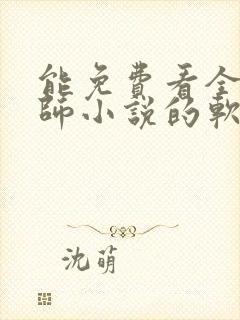 能免費看全
師小説的軟
沈萌